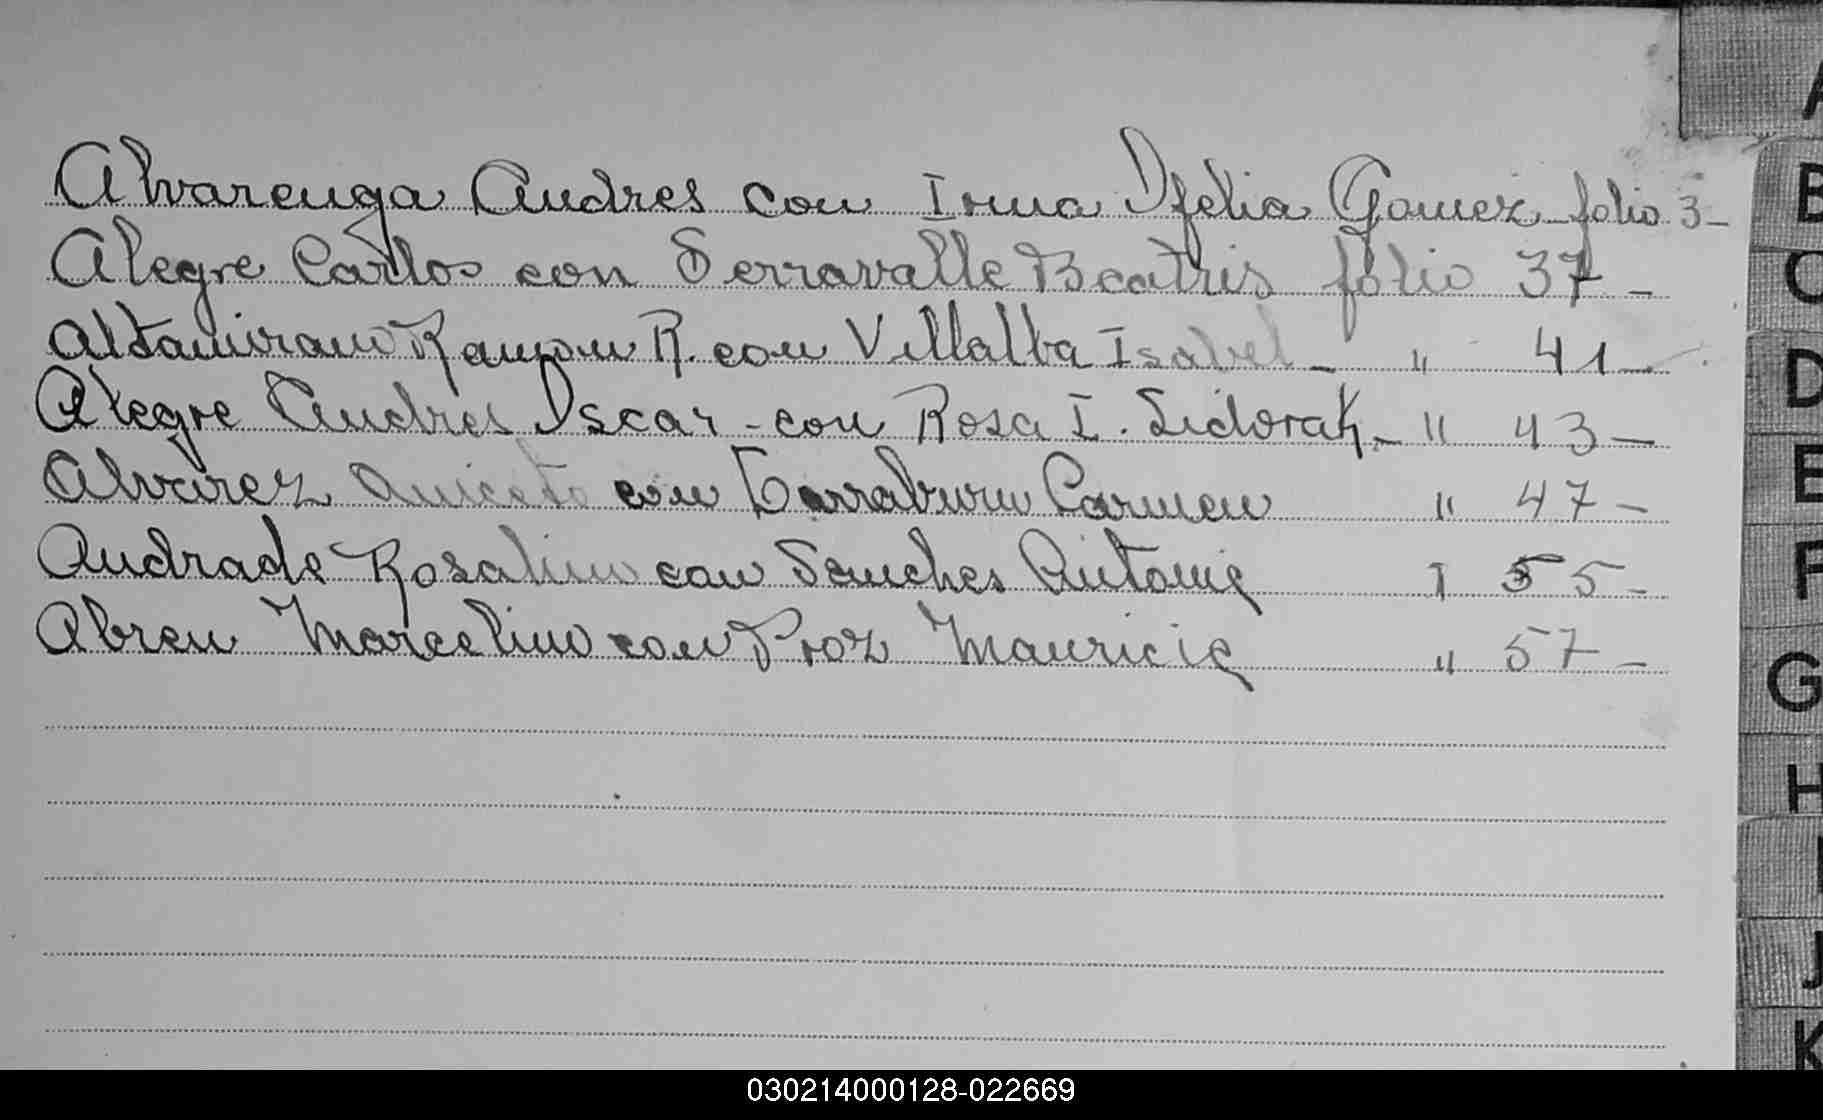 Alvarenga Andres con Irma Ofelia Gomez folio 3-
Alegre Carlos con Serravalle Beatris folio 37-
Altamirano Ramon R. con Villalba Isabel - " 41-
Alegre Andres Oscar - con Rosa I. Sidorak - " 43-
Alvarez Aniceto con Carmen " 47-
Andrade Rosalino con Sanches Antonia " 55-
Abreu Marcelino con Mauricia " 57-
A
B
C
D
E
F
G
H
I
J
K
030214000128-022669